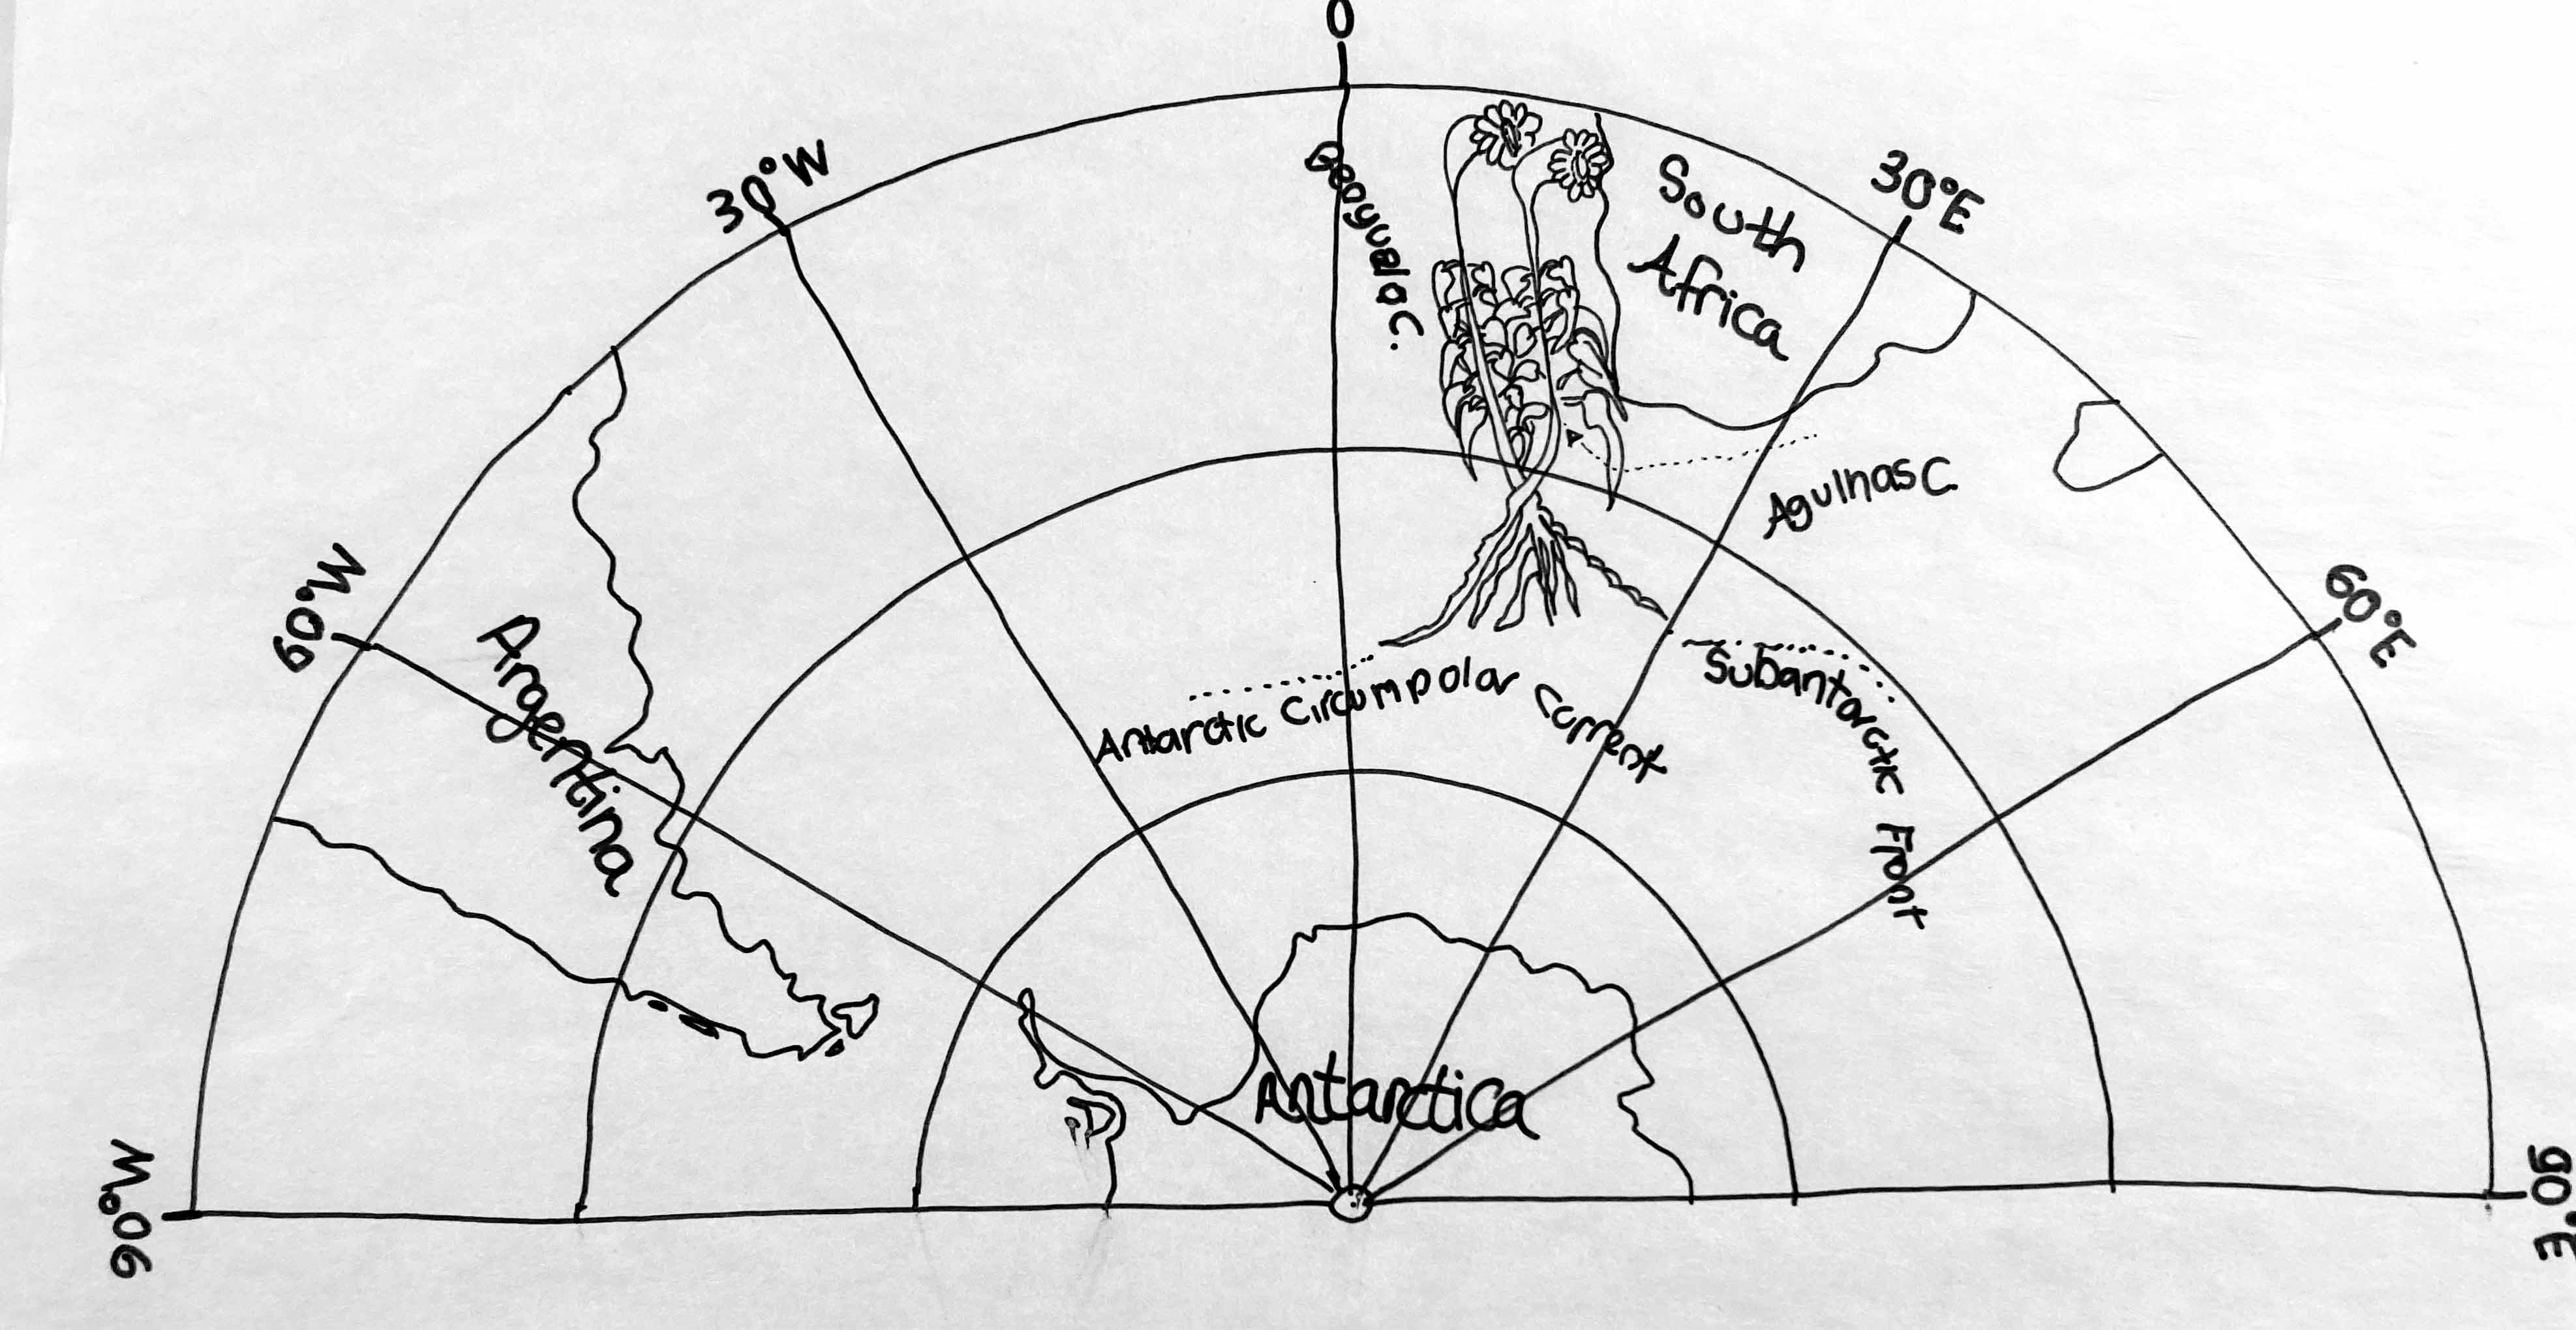 0
30°W
30°E
60°W
60°E
90°W
90°E
South
Africa
Agulhas C.
Argentina
Antarctic Circumpolar Current
Subantarctic Front
Antarctica